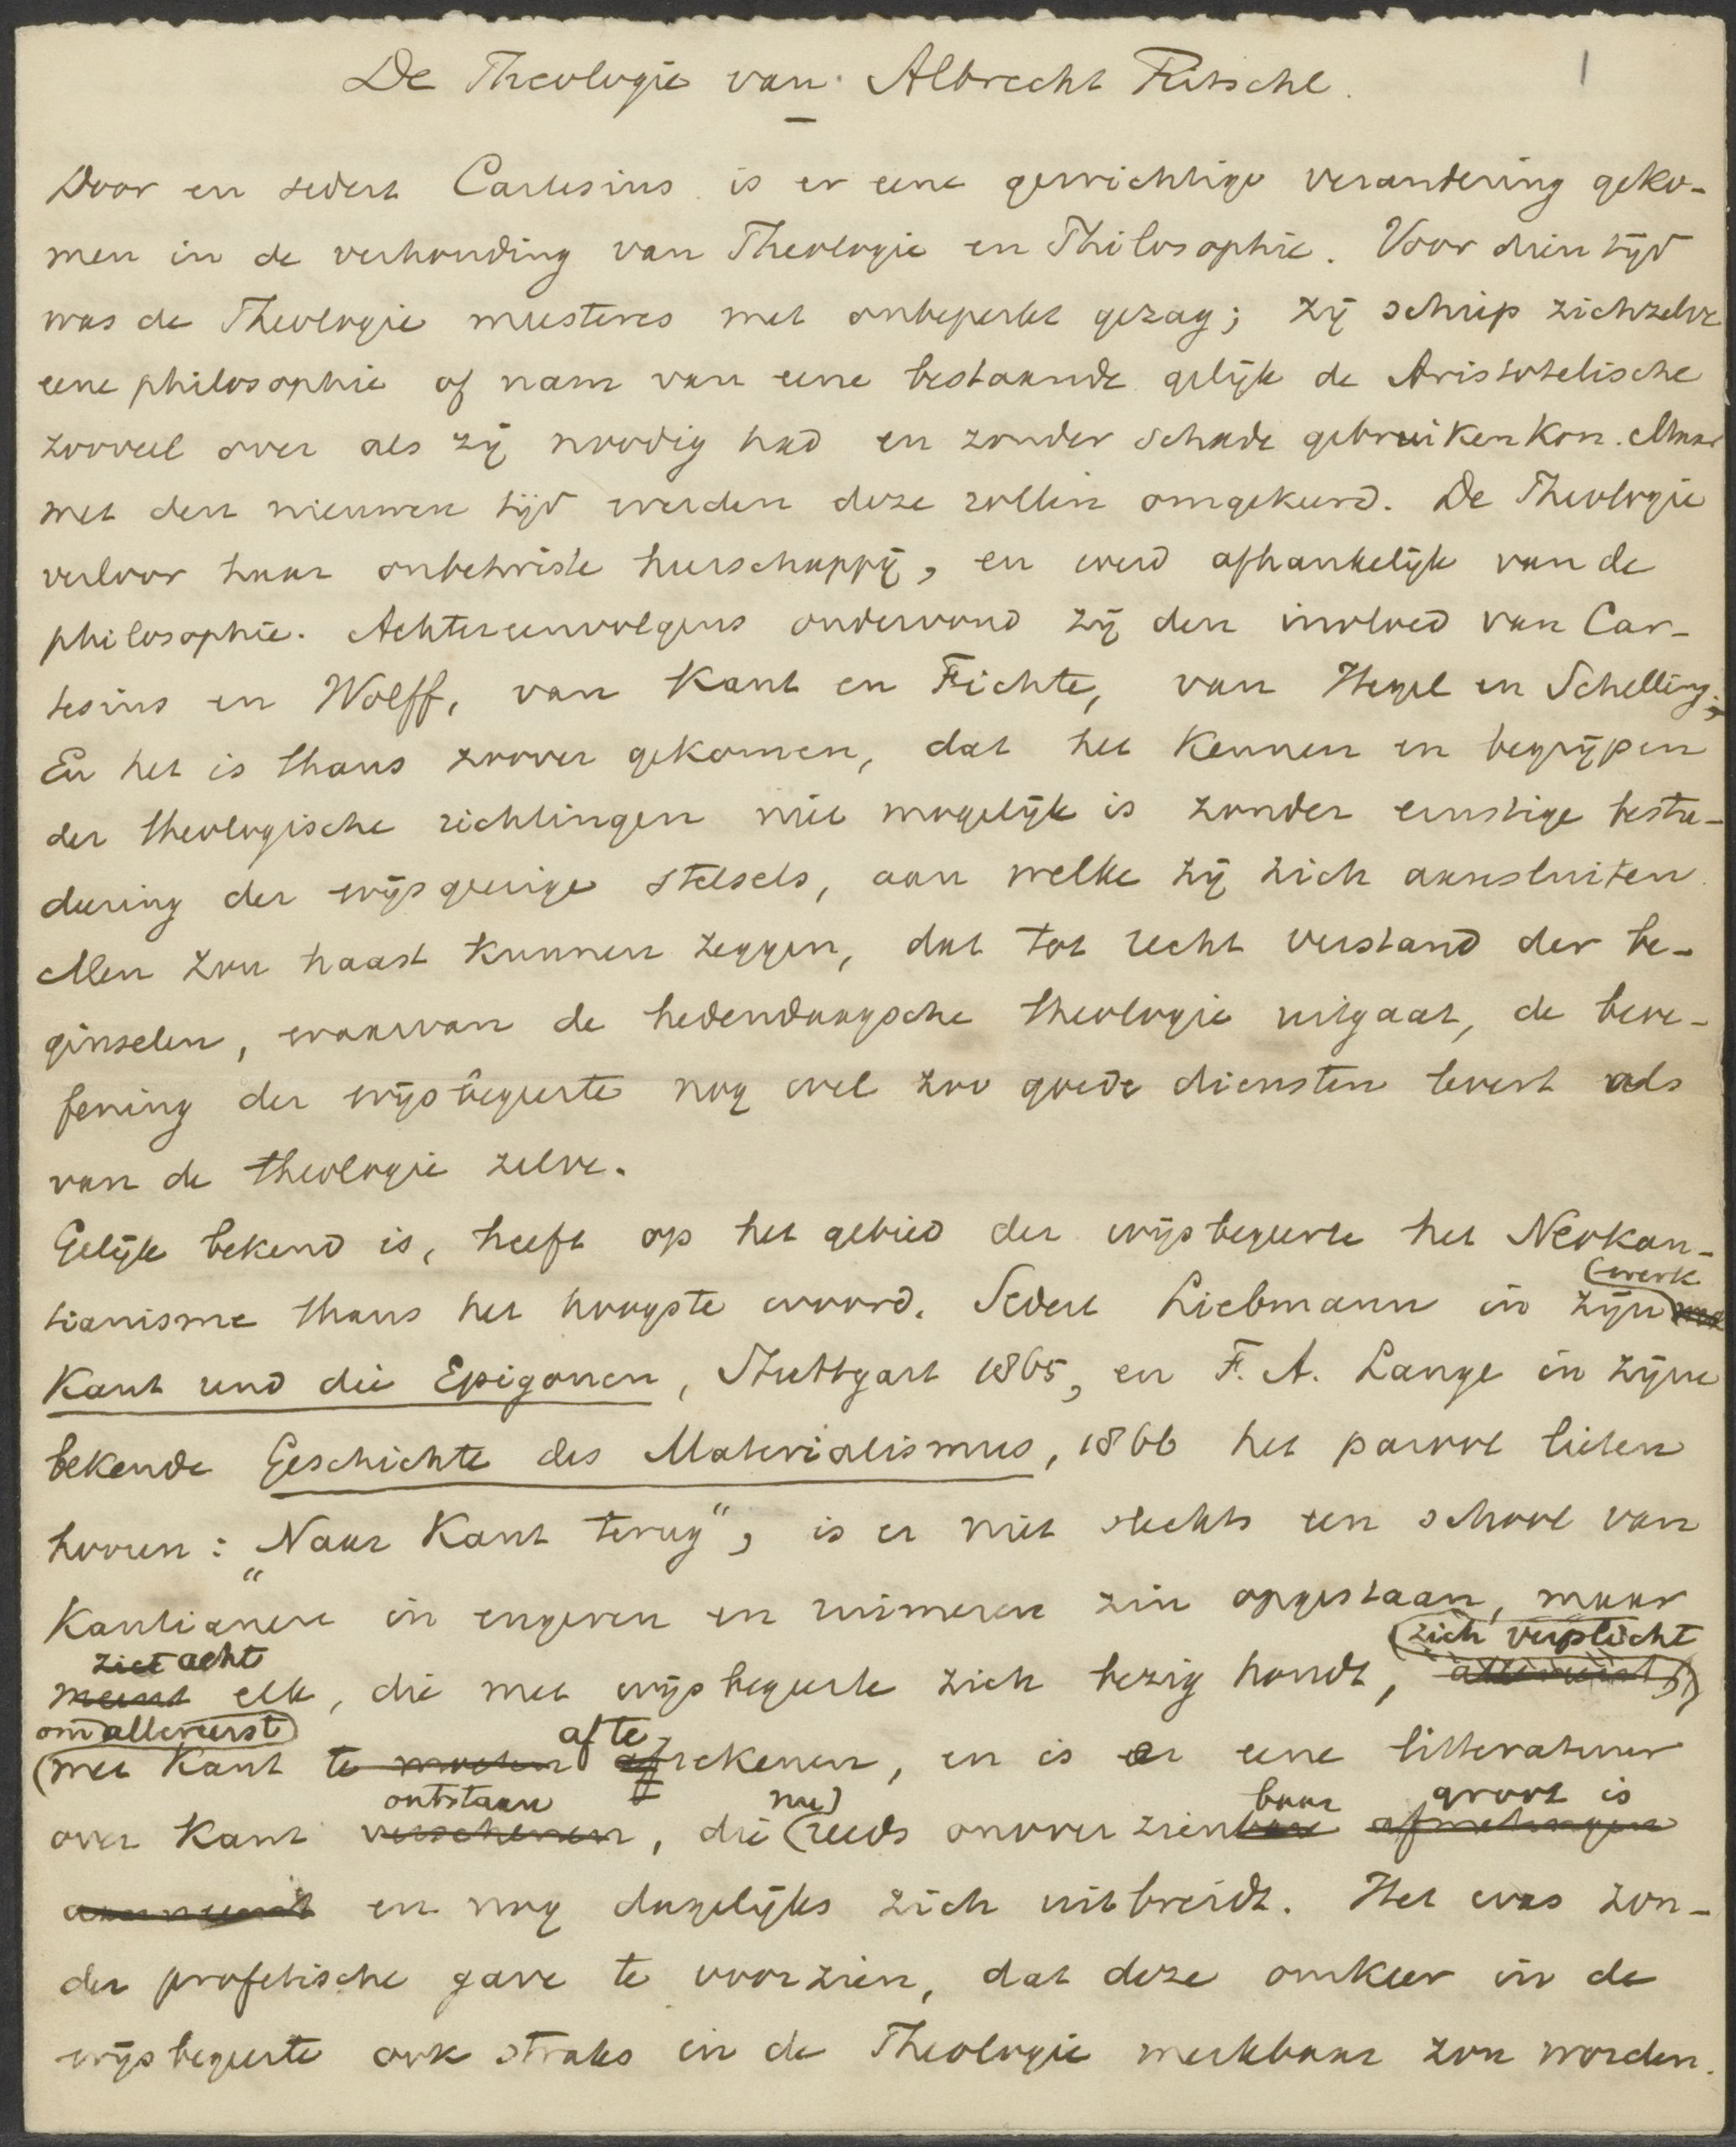 De Theologie van Albrecht Ritschl.
1
Door en sedert Cartesius is er eene gewichtige verandering geko-
men in de verhouding van Theologie en Philosophie. Voor dien tijd
was de Theologie meesteres met onbeperkt gezag; zij schiep zichzelve
eene philosophie of nam van eene bestaande gelijk de Aristotelische
zooveel over als zij noodig had en zonder schade gebruiken kon. Maar
met den nieuwen tijd werden deze rollen omgekeerd. De Theologie
verloor haar onbetwiste heerschappij, en werd afhankelijk van de
philosophie. Achtereenvolgens ondervond zij den invloed van Car-
tesius en Wolff, van Kant en Fichte, van Hegel en Schelling;
En het is thans zoover gekomen, dat het kennen en begrijpen
der theologische richtingen niet mogelijk is zonder ernstige bestu-
deering der wijsgeerige stelsels, aan welke zij zich aansluiten.
Men zou haast kunnen zeggen, dat tot recht verstand der be-
ginselen, waarvan de hedendaagsche theologie uitgaat, de beoe-
fening der wijsbegeerte nog wel zoo goede diensten levert als
van de theologie zelve.
Gelijk bekend is, heeft op het gebied der wijsbegeerte het Neokan-
werk
tianisme thans het hoogste woord. Sedert Liebmann in zijn
Kant und die Epigonen, Stuttgart 1865, en F. A. Lange in zijne
bekende Geschichte des Materialismus, 1866 het parool lieten
hooren: „Naar Kant terug", is er niet slechts een school van
Kantianen in engeren en ruimeren zin opgestaan, maar
ziet acht zich verplicht
meent elk, die met wijsbegeerte zich bezig houdt, allereerst
om allereerst af te
met Kant te moeten afrekenen, en is er eene litteratuur
ontstaan nu baar groot is
over Kant verschenen, die reeds onoverzienbare afmetingen
aanneemt en nog dagelijks zich uitbreidt. Het was zon-
der profetische gave te voorzien, dat deze omkeer in de
wijsbegeerte ook straks in de Theologie merkbaar zou worden.